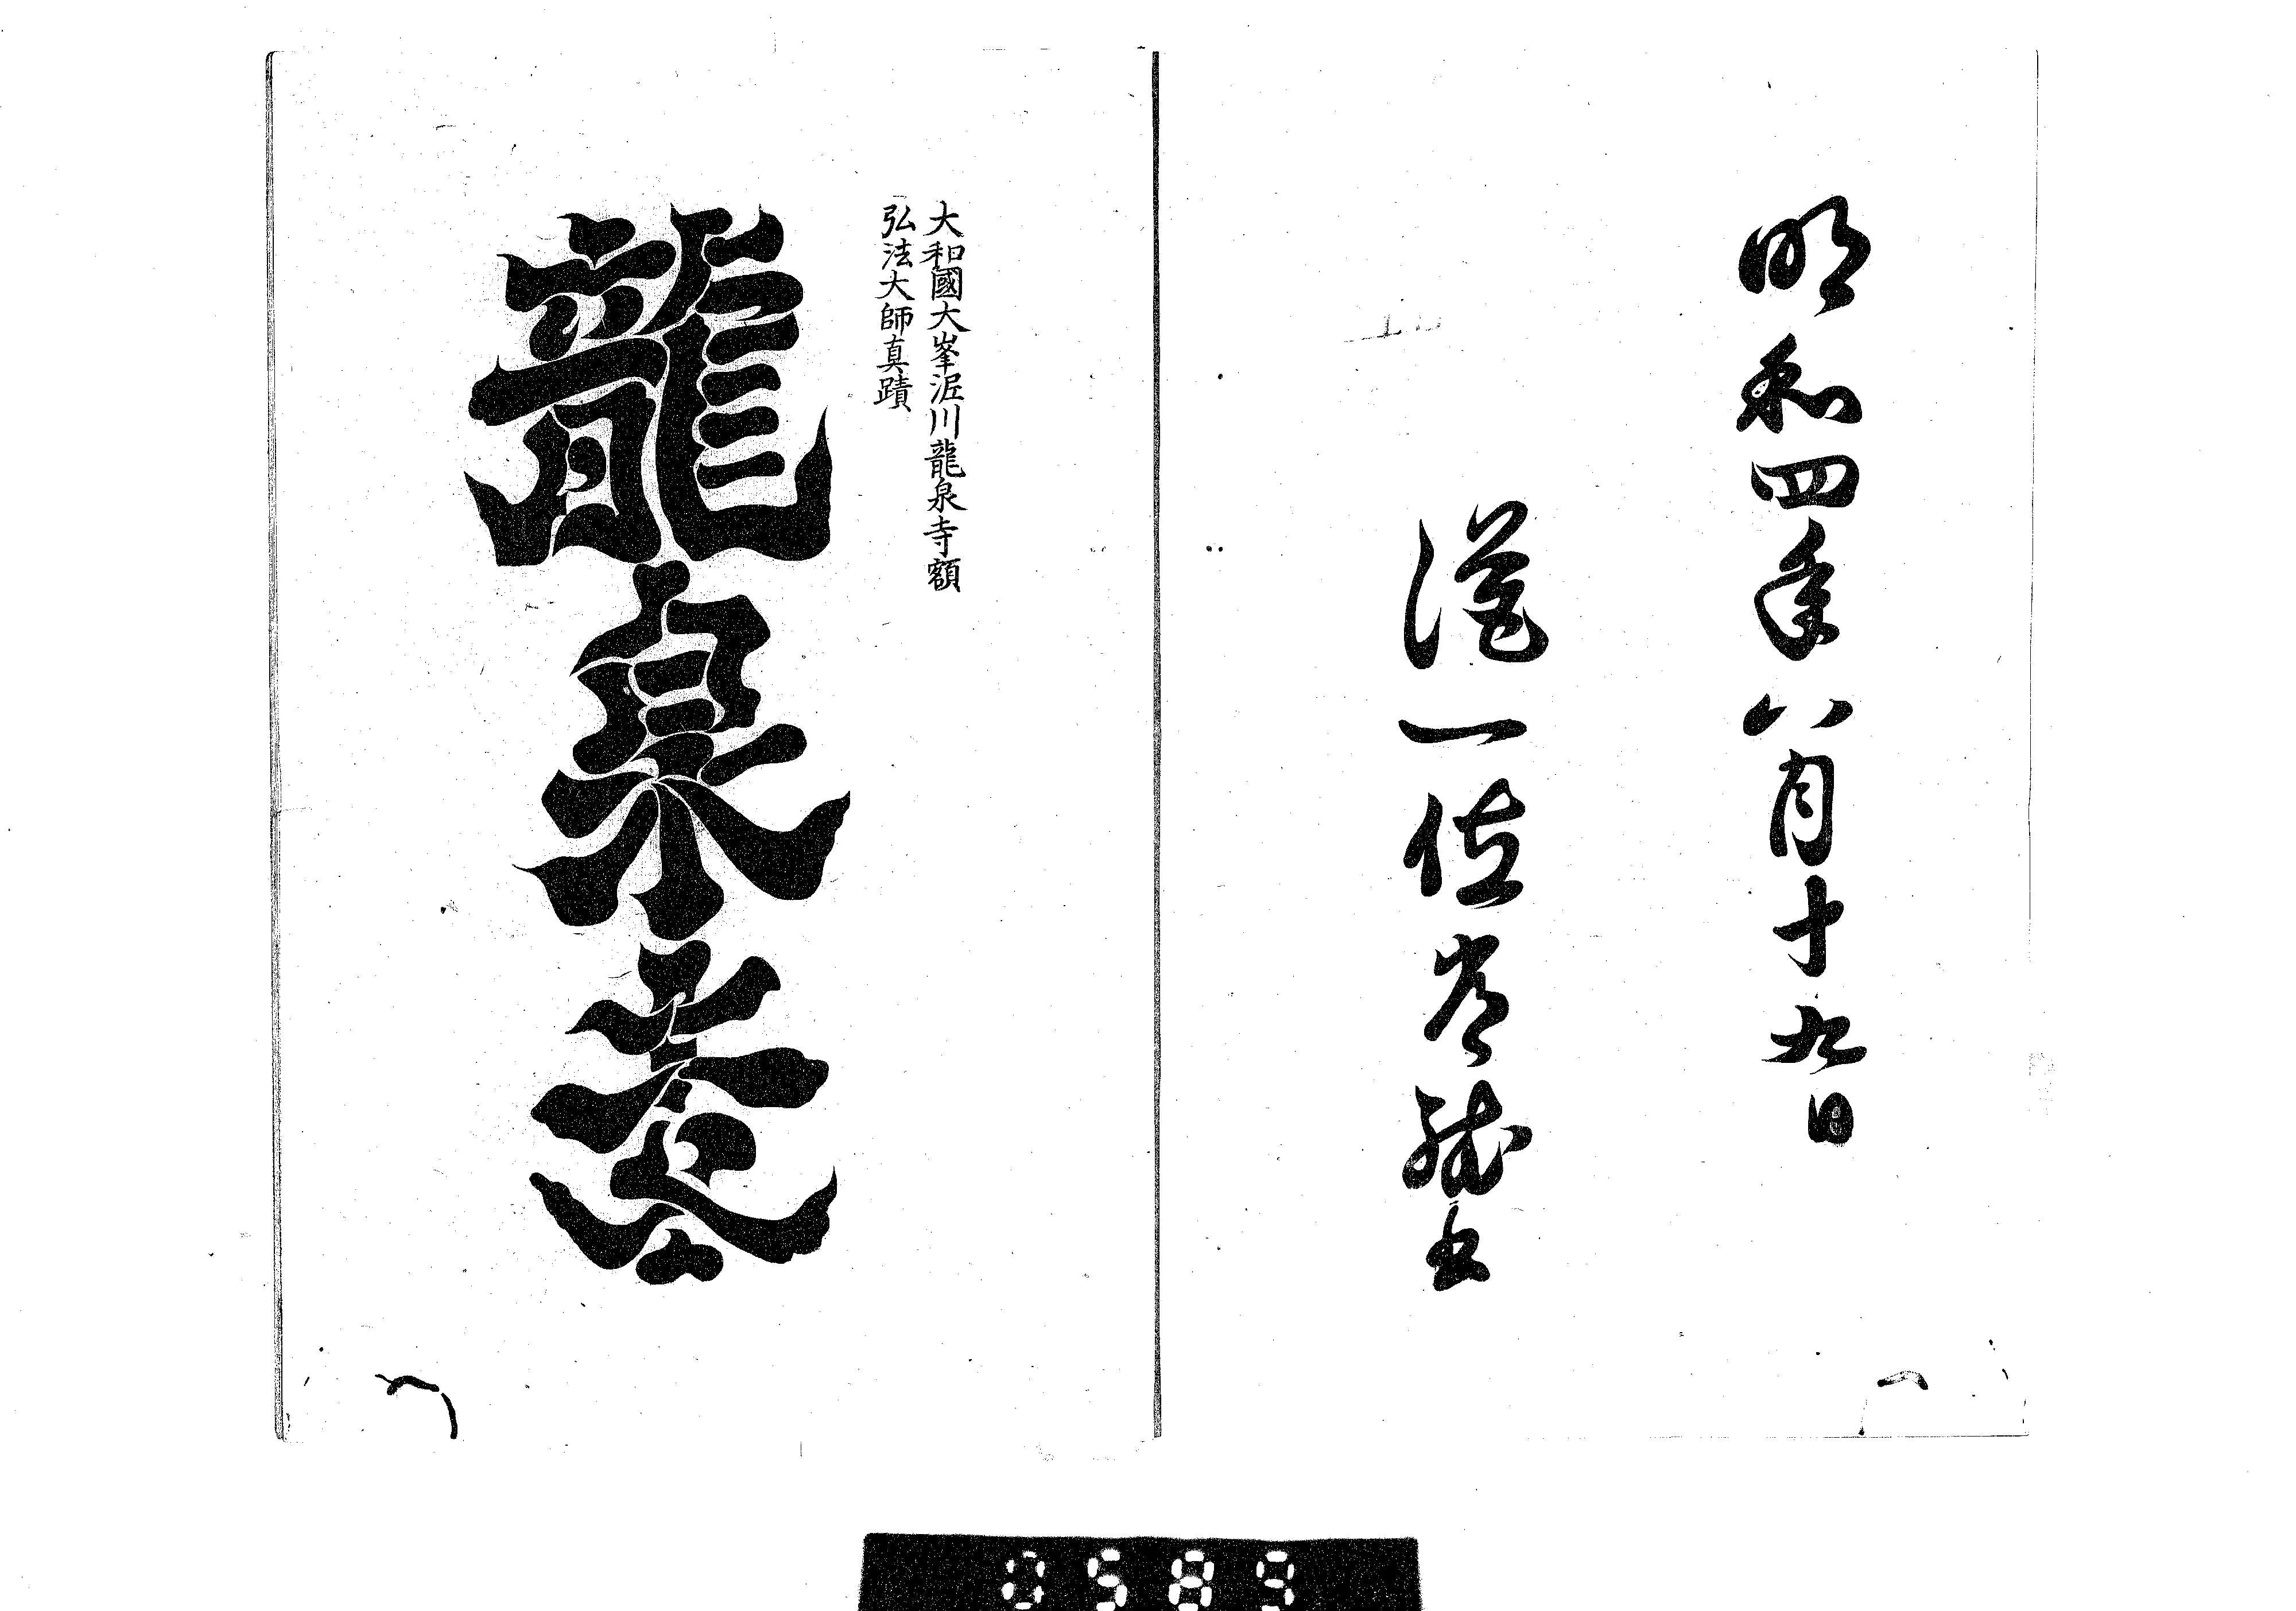 明和四年八月十九日
從一位常雅書
大和國大峯泥川龍泉寺額
弘法大師真蹟
龍泉寺
0589